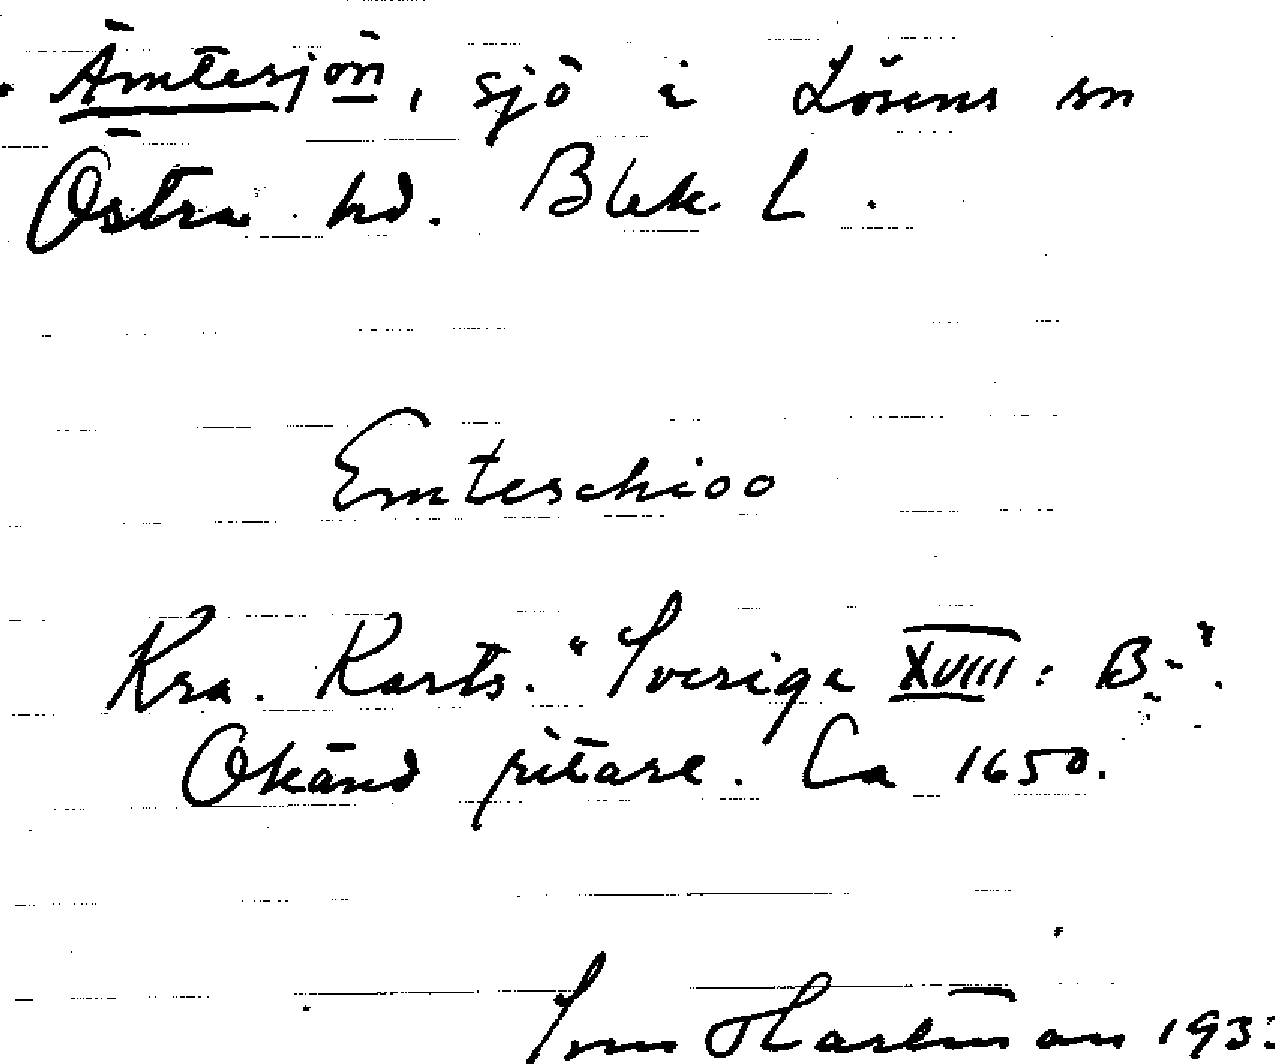 Ämtesjön, sjö i Lösens sn
Östra hd. Blek. L.
Emteschioo
Kra. Karts. "Sverige XVIII: B-".
Okänd ritare. Ca 1650.
Sven Hartman 193